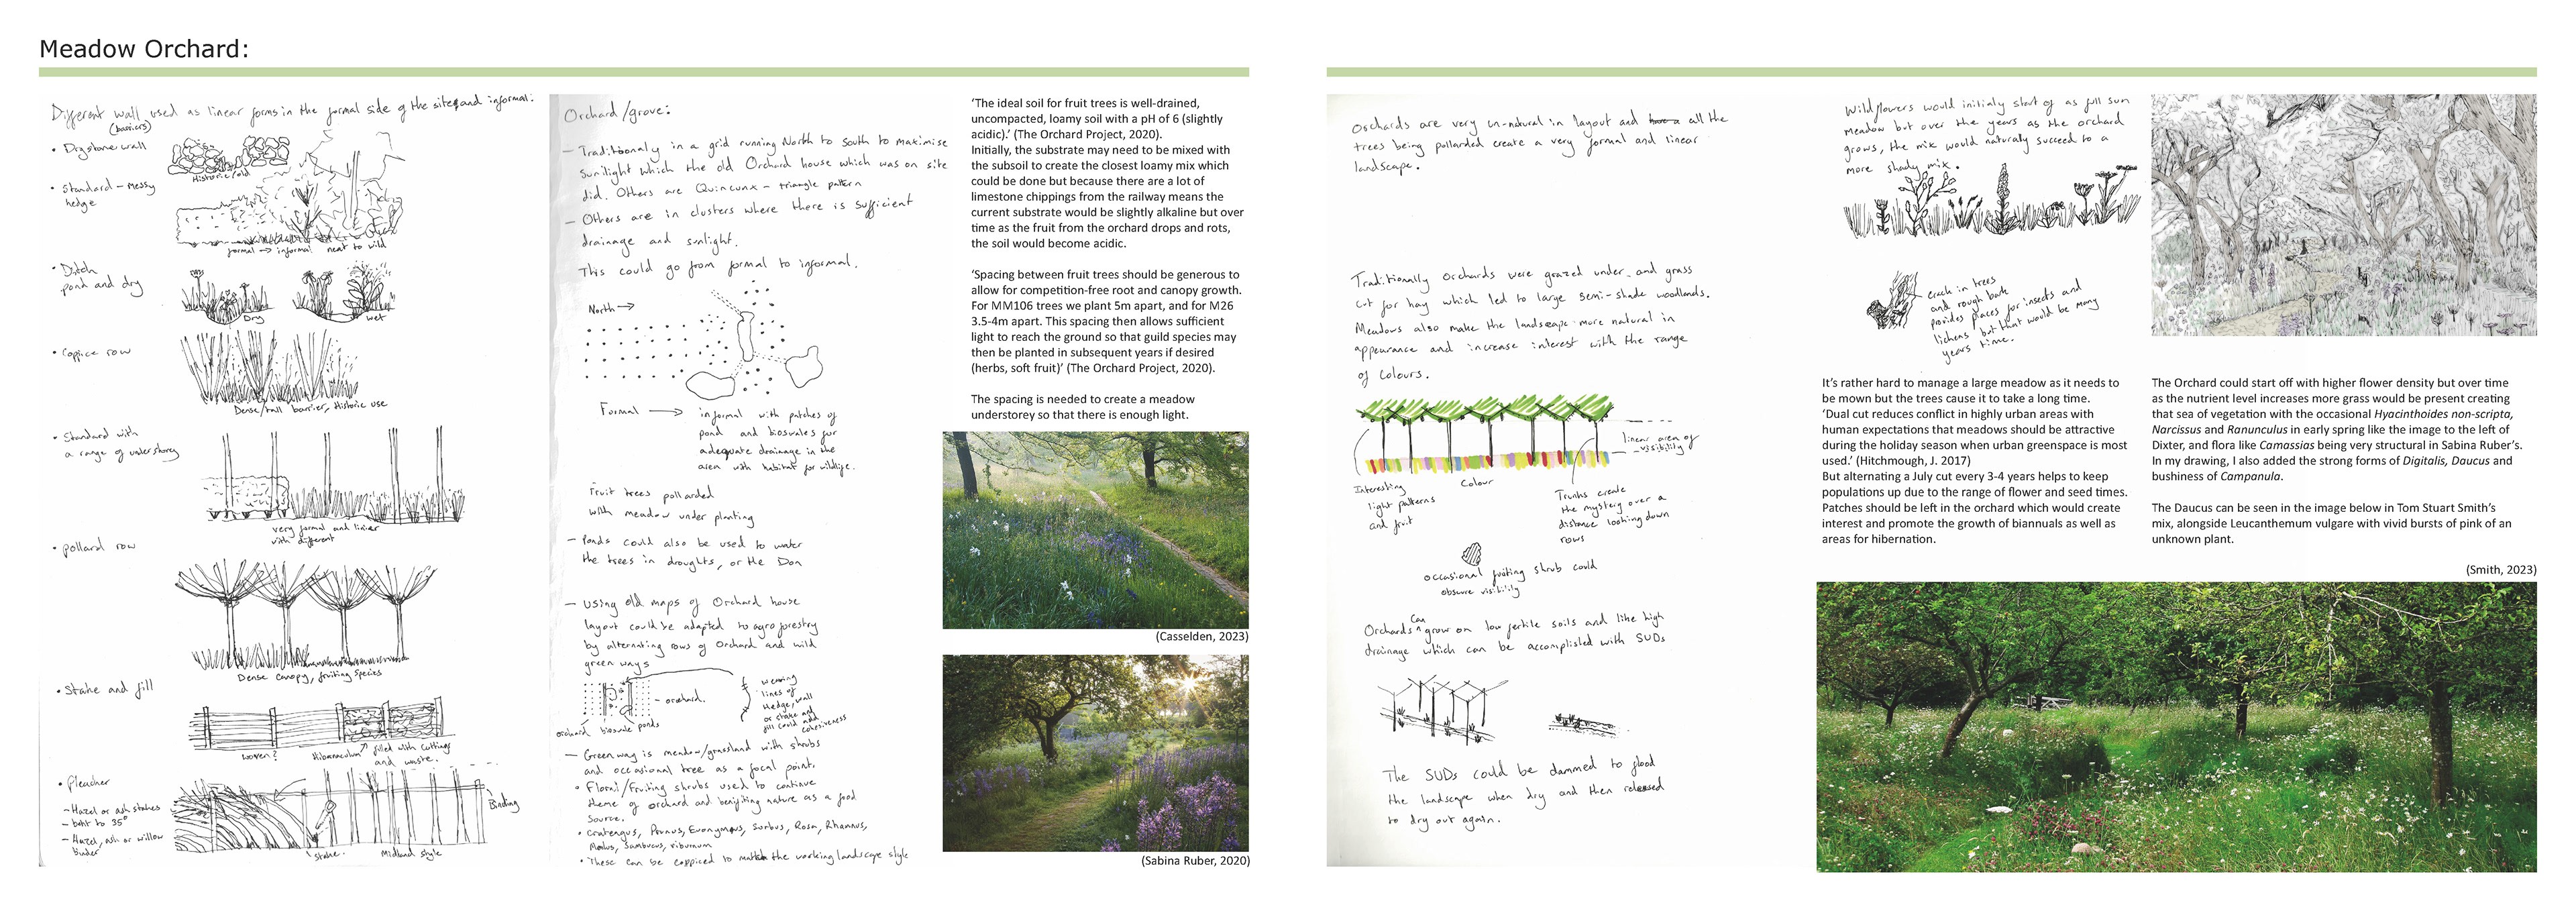 Meadow Orchard:
Different wall used as linear forms in the formal side of the site and informal:
(barriers)
• Dry stone wall
Historic/old
• Standard - messy
hedge
formal → informal neat to wild
• Ditch
pond and dry
Dry
wet
• Coppice row
Dense/tall barrier, Historic use
• Standard with
a range of understorey
very formal and linier
with different
• pollard row
Dense canopy, fruiting species
• Stake and fill
woven?
Hibernaculum filled with cuttings
and waste.
• Pleacher
- Hazel or ash stakes
- bent to 35°
- Hazel, ash or willow
binder
Binding
stake.
Midland style
Orchard/grove:
- Traditionaly in a grid running North to South to maximise
sunlight which the old Orchard house which was on site
did. Others are Quincunx - triangle pattern
- Others are in clusters where there is sufficient
drainage and sunlight.
This could go from formal to informal.
North →
Formal →
informal with patches of
pond and bioswales for
adequate drainage in the
area with habitat for wildlife.
Fruit trees pollarded
with meadow under planting
- Ponds could also be used to water
the trees in droughts, or the Don
- Using old maps of Orchard house
layout could be adapted to agroforestry
by alternating rows of Orchard and wild
green ways
- orchard.
orchard bioswale ponds
weaving
lines of
Hedge, wall
or stake and
fill could add
cohesiveness
- Greenway is meadow/grassland with shrubs
and occasional tree as a focal point.
• Floral/Fruiting shrubs used to continue
theme of orchard and benifiting nature as a food
source.
• Crateagus, Prunus, Euonymous, Sorbus, Rosa, Rhamnus,
Malus, Sambucus, viburnum
• These can be coppiced to match the working landscape style
'The ideal soil for fruit trees is well-drained,
uncompacted, loamy soil with a pH of 6 (slightly
acidic).' (The Orchard Project, 2020).
Initially, the substrate may need to be mixed with
the subsoil to create the closest loamy mix which
could be done but because there are a lot of
limestone chippings from the railway means the
current substrate would be slightly alkaline but over
time as the fruit from the orchard drops and rots,
the soil would become acidic.
'Spacing between fruit trees should be generous to
allow for competition-free root and canopy growth.
For MM106 trees we plant 5m apart, and for M26
3.5-4m apart. This spacing then allows sufficient
light to reach the ground so that guild species may
then be planted in subsequent years if desired
(herbs, soft fruit)' (The Orchard Project, 2020).
The spacing is needed to create a meadow
understorey so that there is enough light.
(Casselden, 2023)
(Sabina Ruber, 2020)
Orchards are very un-natural in layout and have a all the
trees being pollarded create a very formal and linear
landscape.
Traditionally orchards were grazed under and grass
cut for hay which led to large semi-shade woodlands.
Meadows also make the landscape more natural in
appearance and increase interest with the range
of colours.
linear area of
visibility
Interesting
light patterns
and fruit
Colour
Trunks create
the mystery over a
distance looking down
rows
occasional fruiting shrub could
obscure visibility
Orchards can grow on low fertile soils and like high
drainage which can be accomplished with SUDs
The SUDs could be dammed to flood
the landscape when dry and then released
to dry out again.
Wildflowers would initialy start of as full sun
meadow but over the years as the orchard
grows, the mix would naturaly succeed to a
more shady mix.
crack in trees
and rough bark
provides places for insects and
lichens, but that would be many
years time.
It's rather hard to manage a large meadow as it needs to
be mown but the trees cause it to take a long time.
'Dual cut reduces conflict in highly urban areas with
human expectations that meadows should be attractive
during the holiday season when urban greenspace is most
used.' (Hitchmough, J. 2017)
But alternating a July cut every 3-4 years helps to keep
populations up due to the range of flower and seed times.
Patches should be left in the orchard which would create
interest and promote the growth of biannuals as well as
areas for hibernation.
The Orchard could start off with higher flower density but over time
as the nutrient level increases more grass would be present creating
that sea of vegetation with the occasional Hyacinthoides non-scripta,
Narcissus and Ranunculus in early spring like the image to the left of
Dixter, and flora like Camassias being very structural in Sabina Ruber's.
In my drawing, I also added the strong forms of Digitalis, Daucus and
bushiness of Campanula.
The Daucus can be seen in the image below in Tom Stuart Smith's
mix, alongside Leucanthemum vulgare with vivid bursts of pink of an
unknown plant.
(Smith, 2023)